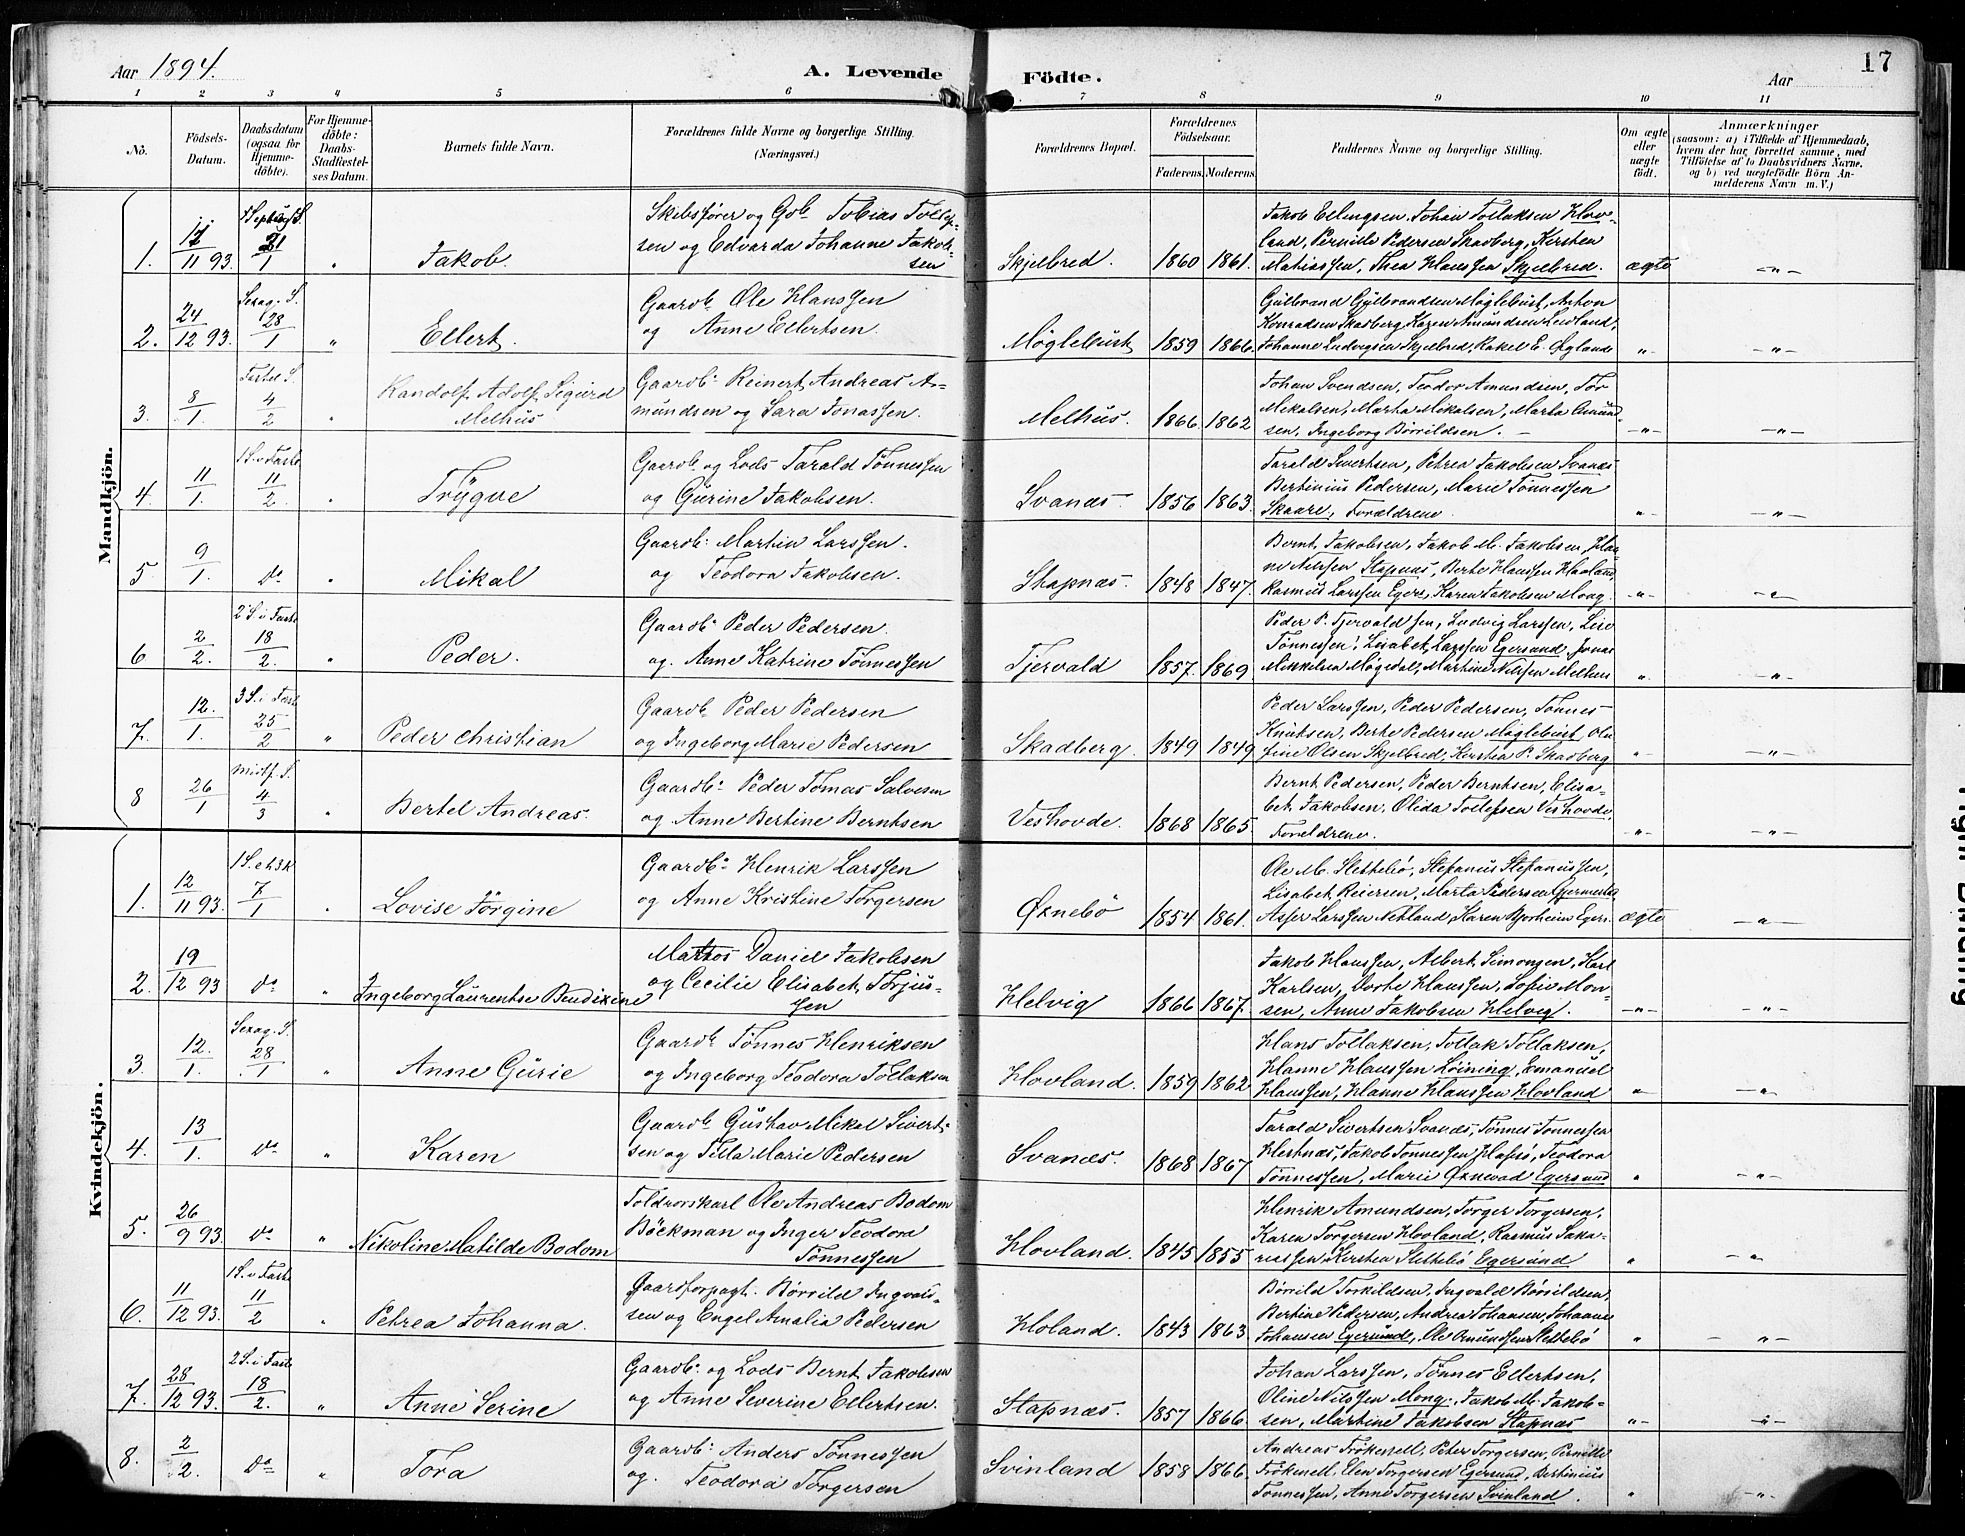 Aar 1894.
A. Levende
Födte.
Aar
17
1 2 3 4 5 6 7 8 9 10 11
No.
Födsels-
Datum.
Daabsdatum
(ogsaa for
Hjemme-
döbte).
For Hjemme-
döbte:
Daabs-
Stadfæstel-
ses Datum.
Barnets fulde Navn.
Forældrenes fulde Navne og borgerlige Stilling.
(Næringsvei.)
Forældrenes Bopæl.
Forældrenes
Födselsaar.
Faderens. Moderens.
Faddernes Navne og borgerlige Stilling.
Om ægte
eller
uægte
födt.
Anmærkninger
(saasom: a) i Tilfælde af Hjemmedaab,
hvem der har forrettet samme, med
Tilföielse af to Daabsvidners Navne,
og b) ved uægtefödte Börn An-
melderens Navn m. V.)
Mandkjön.
1. 11/11 93. Septuag. S. 21/1 " Jakob.
Skibsfører og Gb. Tobias Tollef-
sen og Edvarda Johanne Jakob-
sen
Skjelbred. 1860 1861.
Jakob Ellingsen, Johan Tollaksen Hov-
land, Pernille Pedersen Skadberg, Kirsten
Matiassen, Thea Hanssen Skjelbred. ægte -"-
2. 24/12 93. Sexag. S. 28/1 " Ellert.
Gaardb. Ole Hanssen
og Anne Ellertsen.
Møglebust 1859 1866.
Gulbrand Gulbrandsen Møglebust, Anton
Konradsen Skadberg, Karen Amundsen Leidland,
Johanne Ludvigsen Skjelbred, Rakel E. Øgland " -"-
3. 8/1. Fastel. S. 4/2 " Randolf Adolf Sigurd
Melhus
Gaardb. Reinert Andreas A-
mundsen og Sara Jonassen.
Melhus. 1866 1862
Johan Svendsen, Teodor Amundsen, Tor
Mikalsen, Marta Mikalsen, Marta Amund-
sen, Ingeborg Børrildsen. -"- -"-
4. 11/1. 1 S. i Faste 11/2. " Trygve
Gaardb. og Lods Tarald Tønnessen
og Gurine Jakobsen.
Svanæs. 1856 1863.
Tarald Sivertsen, Petrea Jakobsen Svanæs
Bertinius Pedersen, Marie Tønnessen
Skaare, Forældrene. " -"-
5. 9/1. Do " Mikal
Gaardb. Martin Larssen.
og Teodora Jakobsen.
Stapnæs. 1848 1847.
Bernt Jakobsen, Jakob M. Jakobsen, Han-
ne Nilssen Stapnæs, Berte Hanssen Hovland,
Rasmus Larssen Eger., Karen Jakobsen Mong. -"- -"-
6 2/2. 2 S. i Faste 18/2. " Peder.
Gaardb. Peder Pedersen.
og Anne Katrine Tønnessen
Tjervald 1857. 1869
Peder P. Tjervald, Ludvig Larssen, Lise
Tønnessen, Lisabet Larssen Egersund, Jonas
Mikkelsen Møgedal, Martine Nilssen Melhus " -"-
7. 12/1. 3 S. i Fast. 25/2 " Peder Christian
Gaardb. Peder Pedersen
og Ingeborg Marie Pedersen
Skadberg. 1849 1849.
Peder Larssen, Peder Pedersen, Tønnes
Knutsen, Berte Pedersen Møglebust, Olu-
fine Olsen Skjelbred, Kirstea P. Skadberg " -"-
8 26/1 Midtf. S. 4/3 " Bertel Andreas.
Gaardb. Peder Tomas Salvesen
og Anne Bertine Berntsen
Veshovde. 1868 1865.
Bernt Pedersen, Peder Berntsen, Elisa-
bet Jakobsen, Olida Tollefsen Veshovde,
Forældrene. -"- -"-
Kvindekjön.
1. 12/11 93. 1 S. e. h 3 k 7/1 " Lovise Jørgine
Gaardb. Henrik Larssen
og Anne Kristine Torgersen
Øxnebö 1854 1861.
Ole M. Slettebö, Stefanus Stefanussen,
Lisabet Reiersen, Marta Pedersen
Asser Larssen Netland, Karen Bjorheim Eger. ægte -"-
2. 19/12 93 Do " Ingeborg Laurentse Bendixine
Matros Daniel Jakobsen
og Cecilie Elisabet Torjus-
sen
Helvig 1866 1867.
Jakob Hanssen, Albert Simonsen, Karl
Karlsen, Dorte Hanssen, Sofie Mon-
sen, Anne Jakobsen Helvig. -"- -"-
3. 12/1. Sexag. S. 28/1 " Anne Gurie
Gaardb. Tønnes Henriksen
og Ingeborg Teodora Tollaksen
Hovland. 1859 1862
Hans Tollaksen, Tollak Tollaksen,
Hanne Hanssen Löining, Emanuel
Hanssen, Hanne Hanssen Hovland " -"-
4. 13/1. Do " Karen
Gaardb. Gustav Mikal Sivert-
sen og Tilla Marie Pedersen
Svanæs. 1868 1867
Tarald Sivertsen Svanæs, Tønnes Tønnessen
Hestnæs, Jakob Tønnessen Hafsö, Teodora
Tønnessen, Marie Øxnevad Egersund " -"-
5. 26/9 93. Do " Nikoline Matilde Bodom
Toldroerskarl Ole Andreas Bodom
Böckman og Inger Teodora
Tønnessen
Hovland. 1845 1855
Henrik Amundsen, Torger Torgersen,
Karen Torgersen Hovland, Rasmus Saka-
riassen Kirsten Slettebö Egersund " -"-
6. 11/12 93. 1 S. i Faste 11/2 " Petrea Johanna.
Gaardforpagt. Børrild Ingvald-
sen og Engel Amalia Pedersen
Hovland. 1843 1863.
Børrild Torkildsen, Ingvald Børrildsen,
Bertine Pedersen, Andrea Johansen, Johanne
Johansen Egersund, Ole Amundsen Slettebö " - "-
7. 28/12 93. 2 S. i Faste 18/2. " Anne Serine
Gaardb. og Lods Bernt Jakobsen
og Anne Severine Ellertsen.
Stapnæs. 1857 1866.
Johan Larssen, Tønnes Ellertsen,
Oline Nilssen Mong, Jakob M. Jakob-
sen, Martine Jakobsen Stapnæs "- -"-
8. 2/2. Do " Tora
Gaardb. Anders Tønnessen
og. Teodora Torgersen
Svinland 1858 1866.
Andreas Trökenell, Peter Torgersen, Pernille
Trökenell, Elen Torgersen Egersund, Bertinius
Tønnessen, Anne Torgersen Svinland. " -"-